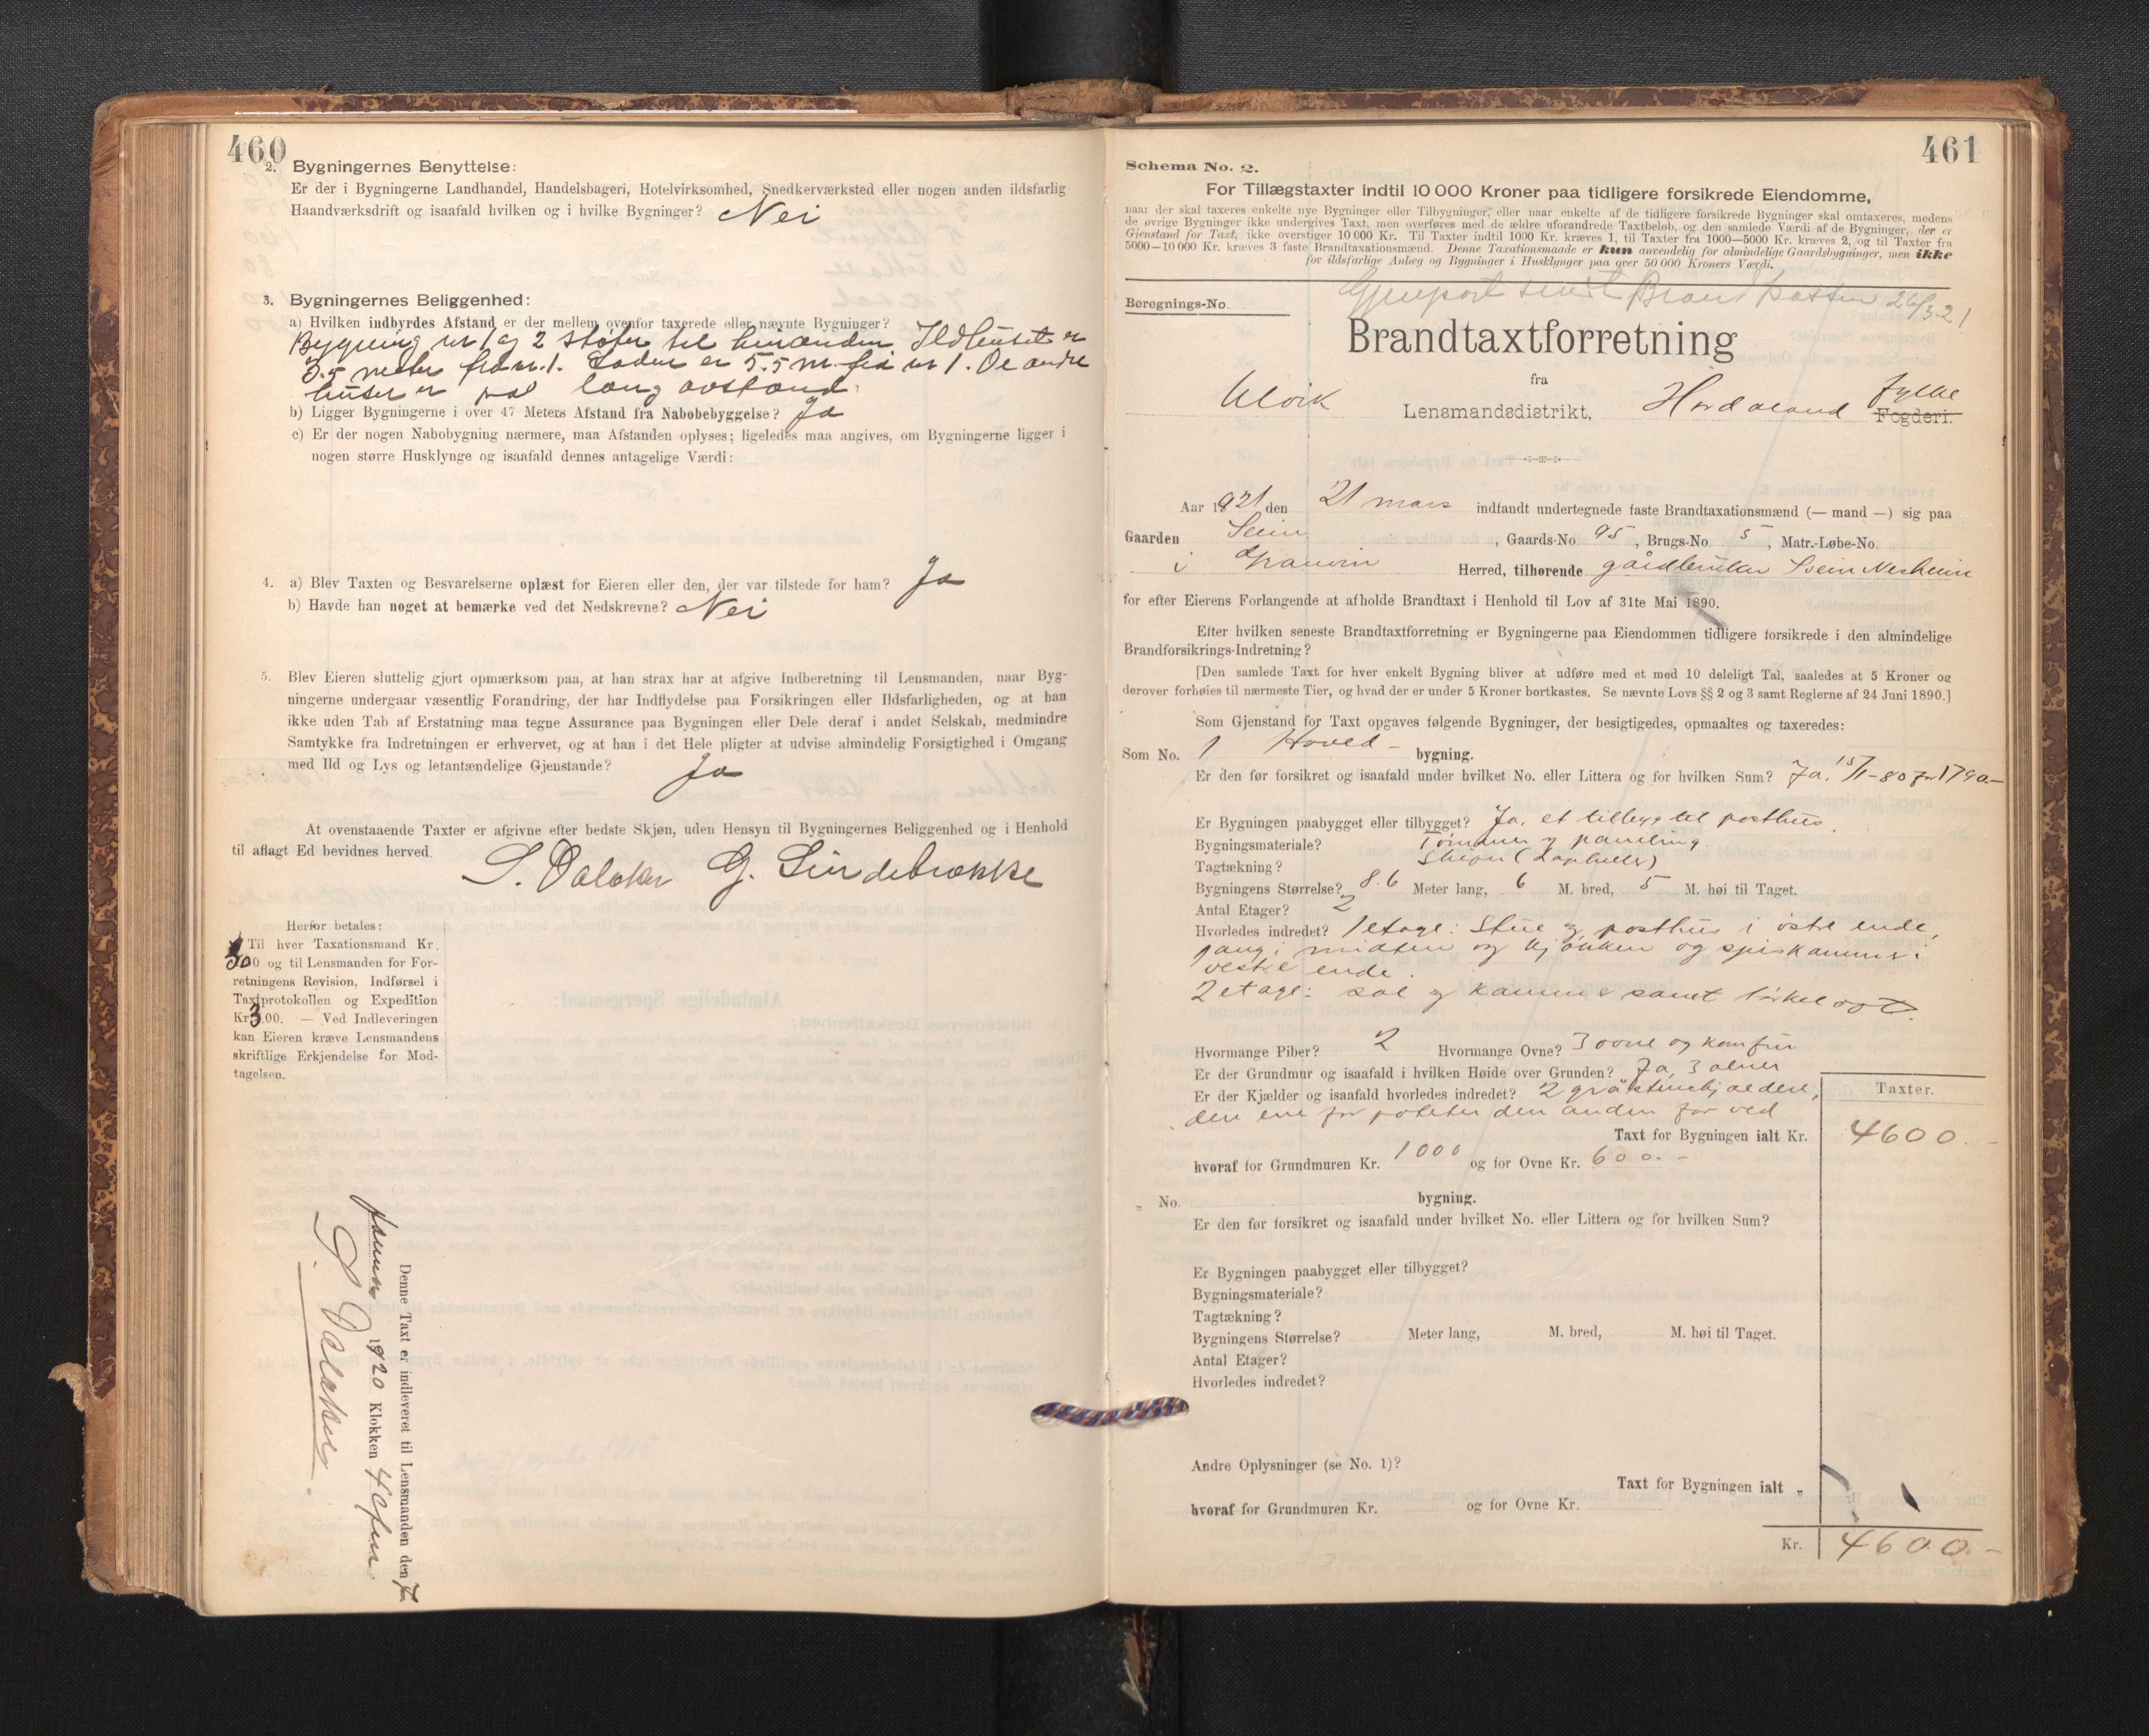 460
2. Bygningernes Benyttelse:
Er der i Bygningerne Landhandel, Handelsbageri, Hotelvirksomhed, Snedkerværksted eller nogen anden ildsfarlig
Haandværksdrift og isaafald hvilken og i hvilke Bygninger? Nei
3. Bygningernes Beliggenhed:
a) Hvilken indbyrdes Afstand er der mellem ovenfor taxerede eller nævnte Bygninger?
Bygning nr 1 og 2 støter til hinanden Ildhuset er
3.5 meter fra nr. 1. Laden er 5.5 m fra nr 1. De andre
huser er paa lang avstand.
b) Ligger Bygningerne i over 47 Meters Afstand fra Nabobebyggelse? Ja
c) Er der nogen Nabobygning nærmere, maa Afstanden oplyses; ligeledes maa angives, om Bygningerne ligger i
nogen større Husklynge og isaafald dennes antagelige Værdi:
4. a) Blev Taxten og Besvarelserne oplæst for Eieren eller den, der var tilstede for ham? Ja
b) Havde han noget at bemærke ved det Nedskrevne? Nei
5. Blev Eieren sluttelig gjort opmærksom paa, at han strax har at afgive Indberetning til Lensmanden, naar Byg-
ningerne undergaar væsentlig Forandring, der har Indflydelse paa Forsikringen eller Ildsfarligheden, og at han
ikke uden Tab af Erstatning maa tegne Assurance paa Bygningen eller Dele deraf i andet Selskab, medmindre
Samtykke fra Indretningen er erhvervet, og at han i det Hele pligter at udvise almindelig Forsigtighed i Omgang
med Ild og Lys og letantændelige Gjenstande? Ja
At ovenstaaende Taxter er afgivne efter bedste Skjøn, uden Hensyn til Bygningernes Beliggenhed og i Henhold
til aflagt Ed bevidnes herved.
S. Dalaker G. Lindebrække
Herfor betales:
Til hver Taxationsmand Kr.
00 og til Lensmanden for For-
retningens Revision, Indførsel i
Taxtprotokollen og Expedition
Kr. 3.00. — Ved Indleveringen
kan Eieren kræve Lensmandens
skriftlige Erkjendelse for Mod-
tagelsen.
Denne Taxt er indleveret til Lensmanden den 7
1920 Klokken 4 efterm
S. Dalaker
461
Schema No. 2.
For Tillægstaxter indtil 10 000 Kroner paa tidligere forsikrede Eiendomme,
naar der skal taxeres enkelte nye Bygninger eller Tilbygninger, eller naar enkelte af de tidligere forsikrede Bygninger skal omtaxeres, medens
de øvrige Bygninger ikke undergives Taxt, men overføres med de ældre uforandrede Taxtbeløb, og den samlede Værdi af de Bygninger, der er
Gjenstand for Taxt, ikke overstiger 10 000 Kr. Til Taxter indtil 1000 Kr. kræves 1, til Taxter fra 1000—5000 Kr. kræves 2, og til Taxter fra
5000—10 000 Kr. kræves 3 faste Brandtaxationsmænd. Denne Taxationsmaade er kun anvendelig for almindelige Gaardsbygninger, men ikke
for ildsfarlige Anlæg og Bygninger i Husklynger paa over 50 000 Kroners Værdi.
Gjenpart sendt 26/3-21
Beregnings-No.
Brandtaxtforretning
fra
Ulvik Lensmandsdistrikt, Hordaland fylke Fogderi.
Aar 1921 den 21 mars indfandt undertegnede faste Brandtaxationsmænd (— mand —) sig paa
Gaarden Seim, Gaards-No. 95, Brugs-No. 5, Matr.-Løbe-No.
i Granvin Herred, tilhørende gårdbruker Svein Nesheim
for efter Eierens Forlangende at afholde Brandtaxt i Henhold til Lov af 31te Mai 1890.
Efter hvilken seneste Brandtaxtforretning er Bygningerne paa Eiendommen tidligere forsikrede i den almindelige
Brandforsikrings-Indretning?
[Den samlede Taxt for hver enkelt Bygning bliver at udføre med et med 10 deleligt Tal, saaledes at 5 Kroner og
derover forhøies til nærmeste Tier, og hvad der er under 5 Kroner bortkastes. Se nævnte Lovs §§ 2 og 3 samt Reglerne af 24 Juni 1890.]
Som Gjenstand for Taxt opgaves følgende Bygninger, der besigtigedes, opmaaltes og taxeredes:
Som No. 1 Hoved- bygning.
Er den før forsikret og isaafald under hvilket No. eller Littera og for hvilken Sum? Ja, 15/1-80 for 1790.-
Er Bygningen paabygget eller tilbygget? Ja, et tilbygg til posthus.
Bygningsmateriale? Tømmer og paneling.
Tagtækning? Skifer
Bygningens Størrelse? 8.6 Meter lang, 6 M. bred, 5 M. høi til Taget.
Antal Etager? 2
Hvorledes indredet? 1 etage: Stue og posthus i østre ende,
gang i midten og kjøkken og spiskammer i
vestre ende.
2 etage: sal og kammer samt mørkeloft.
Hvormange Piber? 2 Hvormange Ovne? 3 ovne og komfur
Er der Grundmur og isaafald i hvilken Høide over Grunden? Ja, 3 alner
Er der Kjælder og isaafald hvorledes indredet? 2 gråstenskjældere,
den ene for poteter den anden for ved
Taxter.
Taxt for Bygningen ialt Kr. 4600.-
hvoraf for Grundmuren Kr. 1000 og for Ovne Kr. 600.-
„ No. bygning.
Er den før forsikret og isaafald under hvilket No. eller Littera og for hvilken Sum?
Er Bygningen paabygget eller tilbygget?
Bygningsmateriale?
Tagtækning?
Bygningens Størrelse? Meter lang, M. bred, M. høi til Taget.
Antal Etager?
Hvorledes indredet?
Andre Oplysninger (se No. 1)?
Taxt for Bygningen ialt „
hvoraf for Grundmuren Kr. og for Ovne Kr.
Kr. 4600.-